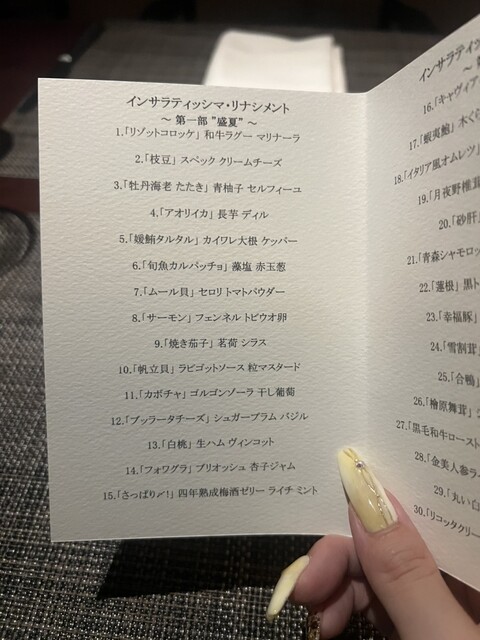 インサラティッシマ・リナシメント
～ 第一部 "盛夏" ～
1.「リゾットコロッケ」 和牛ラグー マリナーラ
2.「枝豆」 スペック クリームチーズ
3.「牡丹海老 たたき」 青柚子 セルフィーユ
4.「アオリイカ」 長芋 ディル
5.「媛鮪タルタル」 カイワレ大根 ケッパー
6.「旬魚カルパッチョ」 藻塩 赤玉葱
7.「ムール貝」 セロリ トマトパウダー
8.「サーモン」 フェンネル トビウオ卵
9.「焼き茄子」 茗荷 シラス
10.「帆立貝」 ラビゴットソース 粒マスタード
11.「カボチャ」 ゴルゴンゾーラ 干し葡萄
12.「ブッラータチーズ」 シュガープラム バジル
13.「白桃」 生ハム ヴィンコット
14.「フォワグラ」 ブリオッシュ 杏子ジャム
15.「さっぱり〆!」 四年熟成梅酒ゼリー ライチ ミント
インサラティ
～
16.「キャヴィア
17.「蝦夷鮑」 木くら
18.「イタリア風オムレツ」
19.「月夜野椎茸
20.「砂肝」
21.「青森シャモロッ
22.「蓮根」 黒ト
23.「幸福豚」
24.「雪割茸」
25.「合鴨」
26.「檜原舞茸」
27.「黒毛和牛ロースト
28.「金美人参ラー
29.「丸い白
30.「リコッタクリー